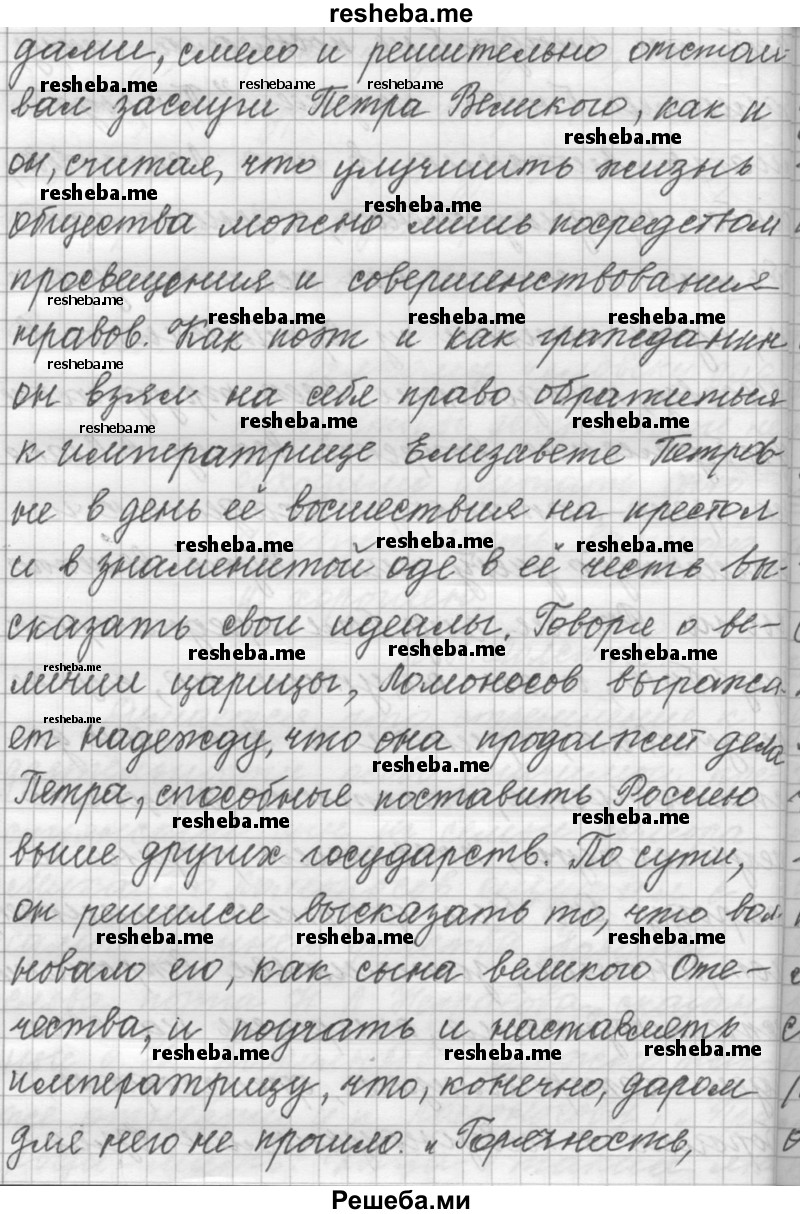 resheba.me
дами, смело и решительно отстаи-
resheba.me resheba.me resheba.me
вал заслуги Петра Великого, как и
resheba.me
он, считая, что улучшить жизнь
resheba.me resheba.me
общества можно лишь посредством
просвещения и совершенствования
resheba.me resheba.me resheba.me resheba.me
нравов. Как поэт и как гражданин
resheba.me
он взял на себя право обратиться
resheba.me resheba.me resheba.me
к императрице Елизавете Петров
не в день её восшествия на престол
resheba.me resheba.me resheba.me
и в знаменитой оде в её честь вы-
сказать свои идеалы. Говоря о ве-
resheba.me resheba.me resheba.me resheba.me
личии царицы, Ломоносов выража-
resheba.me
ет надежду, что она продолжит дела
resheba.me
Петра, способные поставить Россию
resheba.me resheba.me
выше других государств. По сути,
он решился высказать то, что вол-
resheba.me resheba.me resheba.me
новало его, как сына великого Оте-
чества, и поучать и наставлять
resheba.me resheba.me resheba.me
императрицу, что, конечно, даром
для него не прошло. „Горячность,
Решеба.ми